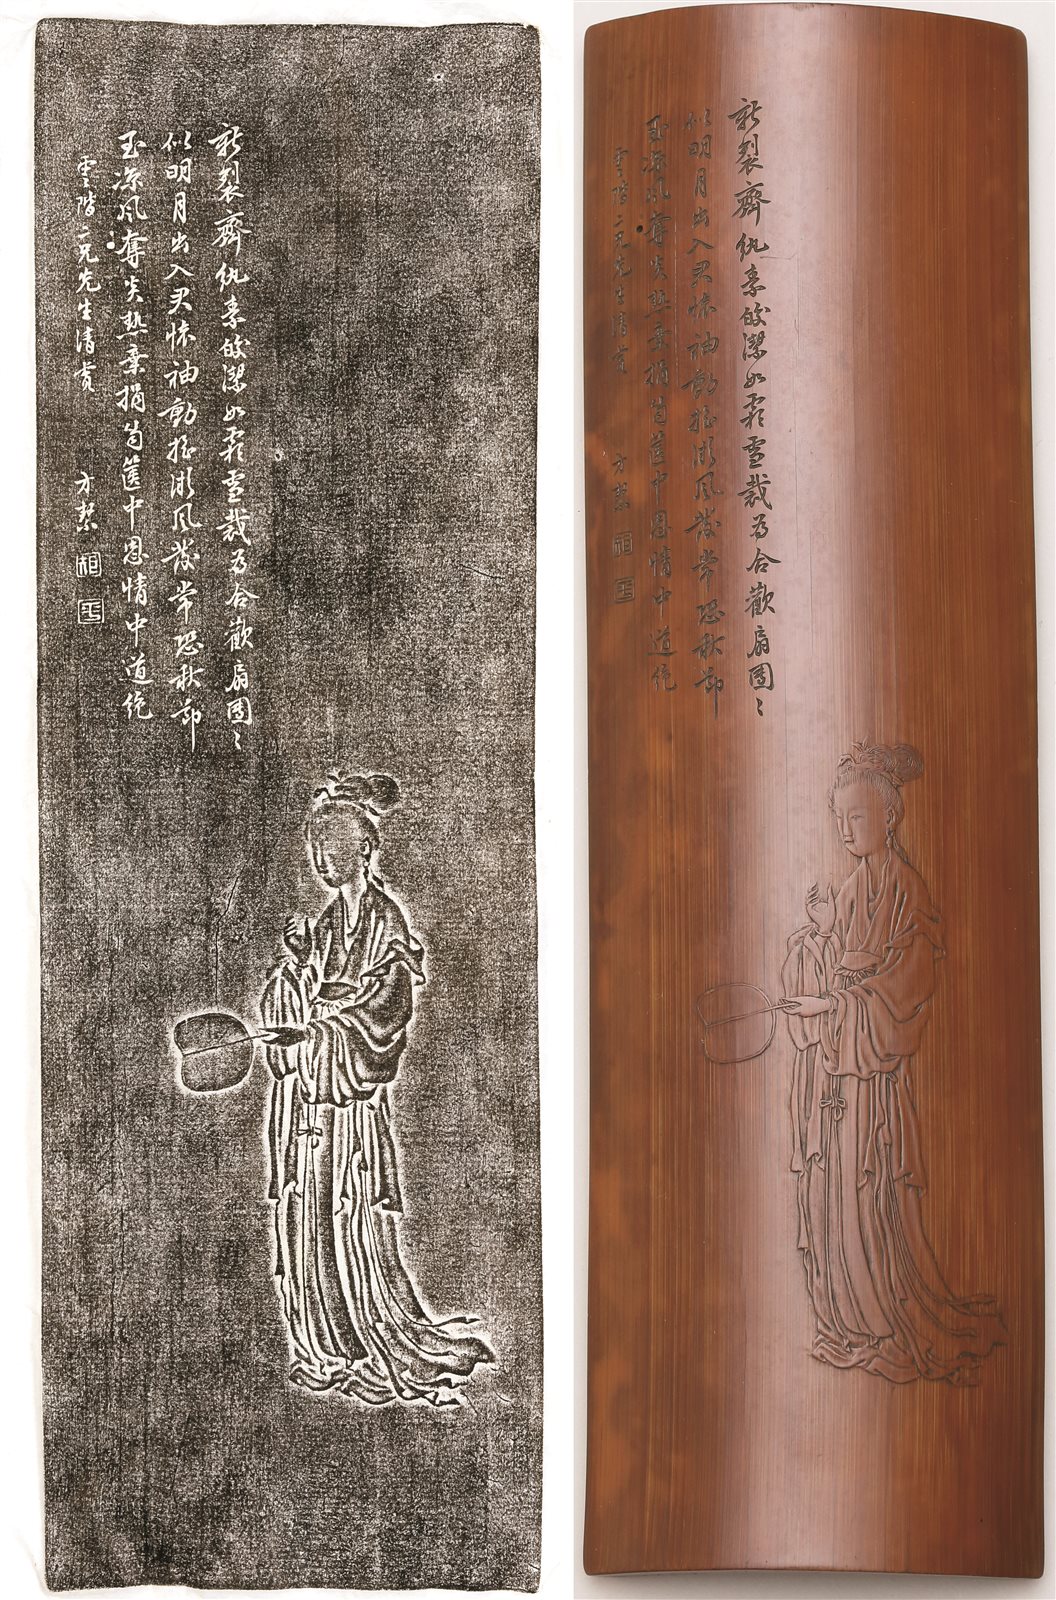 新裂齊紈素皎潔如霜雪裁為合歡扇團〻
似明月出入君懷袖動搖微風發常恐秋節
至涼風奪炎熱棄捐笥篋中恩情中道絕
雲階二兄先生清賞 方絜
新裂齊紈素皎潔如霜雪裁為合歡扇團〻
似明月出入君懷袖動搖微風發常恐秋節
至涼風奪炎熱棄捐笥篋中恩情中道絕
雲階二兄先生清賞 方絜